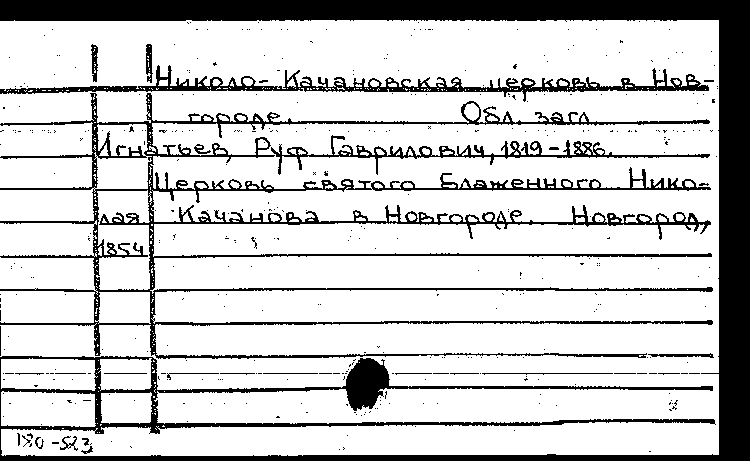 Николо-Качановская церковь в Нов-
городе. Обл. загл.
Игнатьев, Руф Гаврилович, 1819-1886.
Церковь святого Блаженного Нико-
лая Качанова в Новгороде. Новгород,
1854
180-523